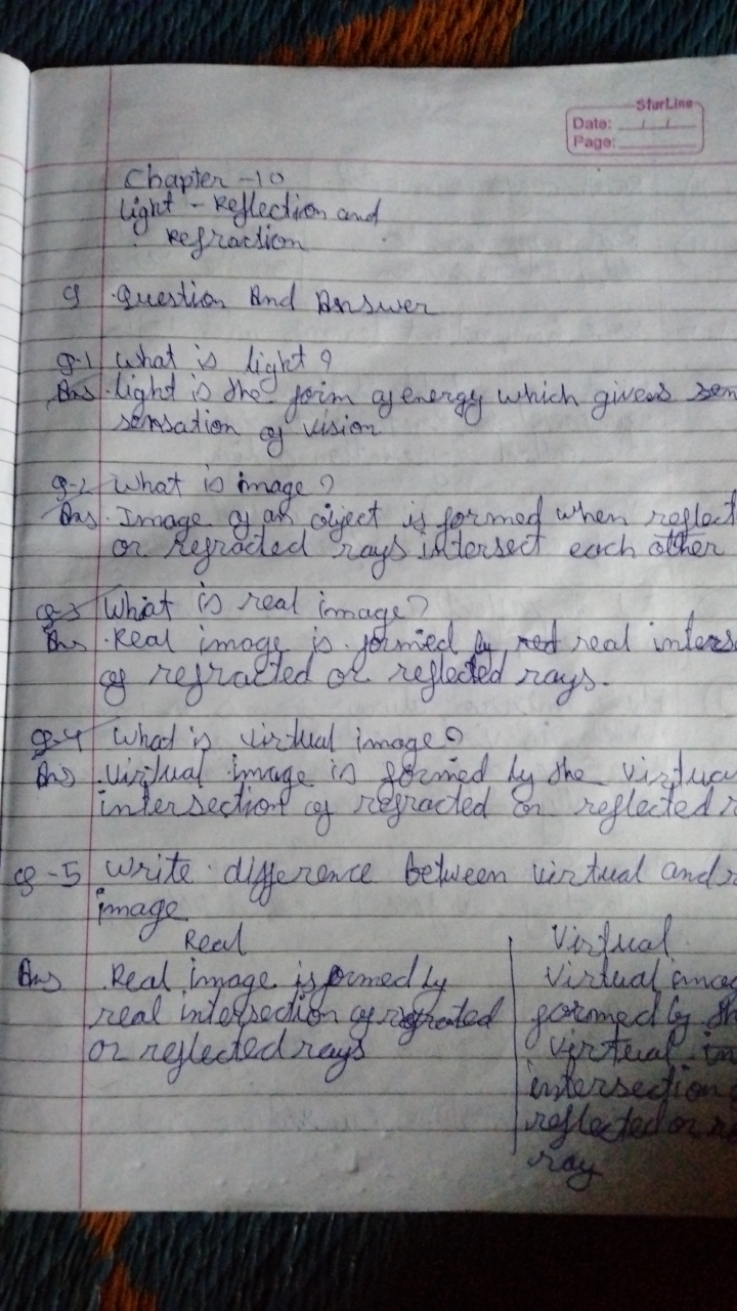 StarLine
Date: / /
Page:
Chapter -10
Light - Reflection and
Refraction
Question And Answer
Q-1 What is light?
Ans. Light is the form of energy which gives sen
sensation of vision
Q-2 What is image?
Ans. Image of an object is formed when reflect
or refracted rays intersect each other
Q-3 What is real image?
Ans. Real image is formed by red real inters
of refracted or reflected rays.
Q-4 What is virtual image?
Ans Virtual image is formed by the virtua
intersection of refracted or reflected r
Q-5 Write difference between virtual and r
image
Real Virtual
Ans Real image is formed by Virtual imag
real intersection of refracted formed by th
or reflected rays virtual in
intersection
reflected or r
ray